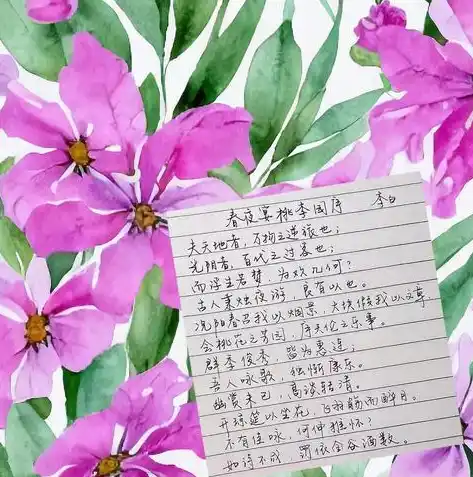 春夜宴桃李园序 李白
夫天地者，万物之逆旅也；
光阴者，百代之过客也；
而浮生若梦，为欢几何？
古人秉烛夜游，良有以也。
况阳春召我以烟景，大块假我以文章
会桃花之芳园，序天伦之乐事。
群季俊秀，皆为惠连；
吾人咏歌，独惭康乐。
幽赏未已，高谈转清。
开琼筵以坐花，飞羽觞而醉月。
不有佳咏，何伸雅怀？
如诗不成，罚依金谷酒数。